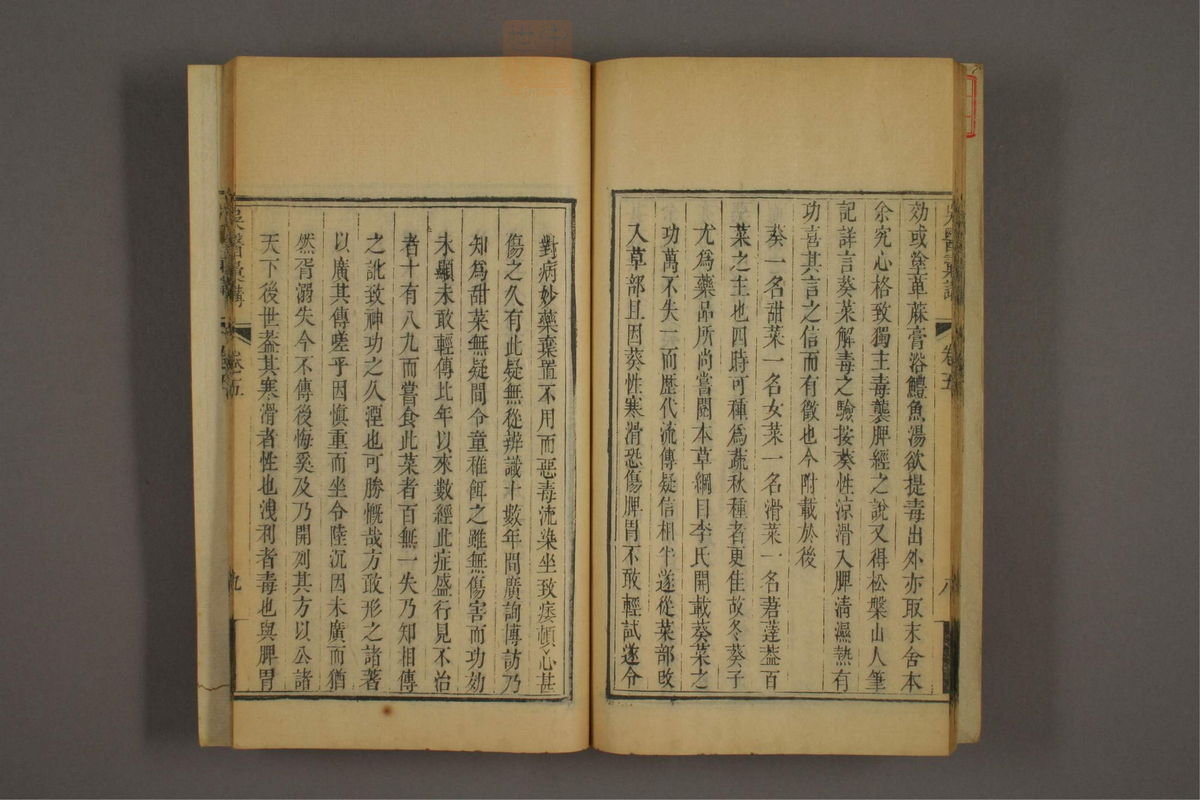 効或塗萆蔴膏浴鱧魚湯欲提毒出外亦取末舍本
余究心格致獨主毒襲脾經之說又得松槃山人筆
記詳言葵菜解毒之驗按葵性涼滑入脾清濕熱有
功喜其言之信而有徵也今附載於後
葵一名甜菜一名女菜一名滑菜一名莙薘葢百
菜之主也四時可種爲蔬秋種者更佳故冬葵子
尤爲藥品所尚嘗閱本草綱目李氏開載葵菜之
功萬不失一而歷代流傳疑信相半遂從菜部改
入草部且因葵性寒滑恐傷脾胃不敢輕試遂令
吳醫彙講
卷五
八
對病妙藥棄置不用而惡毒流染坐致痿頓心甚
傷之久有此疑無從辨識十數年間廣詢博訪乃
知爲甜菜無疑間令童稚餌之雖無傷害而功効
未顯未敢輕傳比年以來數經此症盛行見不治
者十有八九而嘗食此菜者百無一失乃知相傳
之訛致神功之久湮也可勝慨哉方敢形之諸著
以廣其傳嗟乎因慎重而坐令陸沉因未廣而猶
然胥溺失今不傳後悔奚及乃開列其方以公諸
天下後世葢其寒滑者性也洩利者毒也與脾胃
吳醫彙講
卷五
九